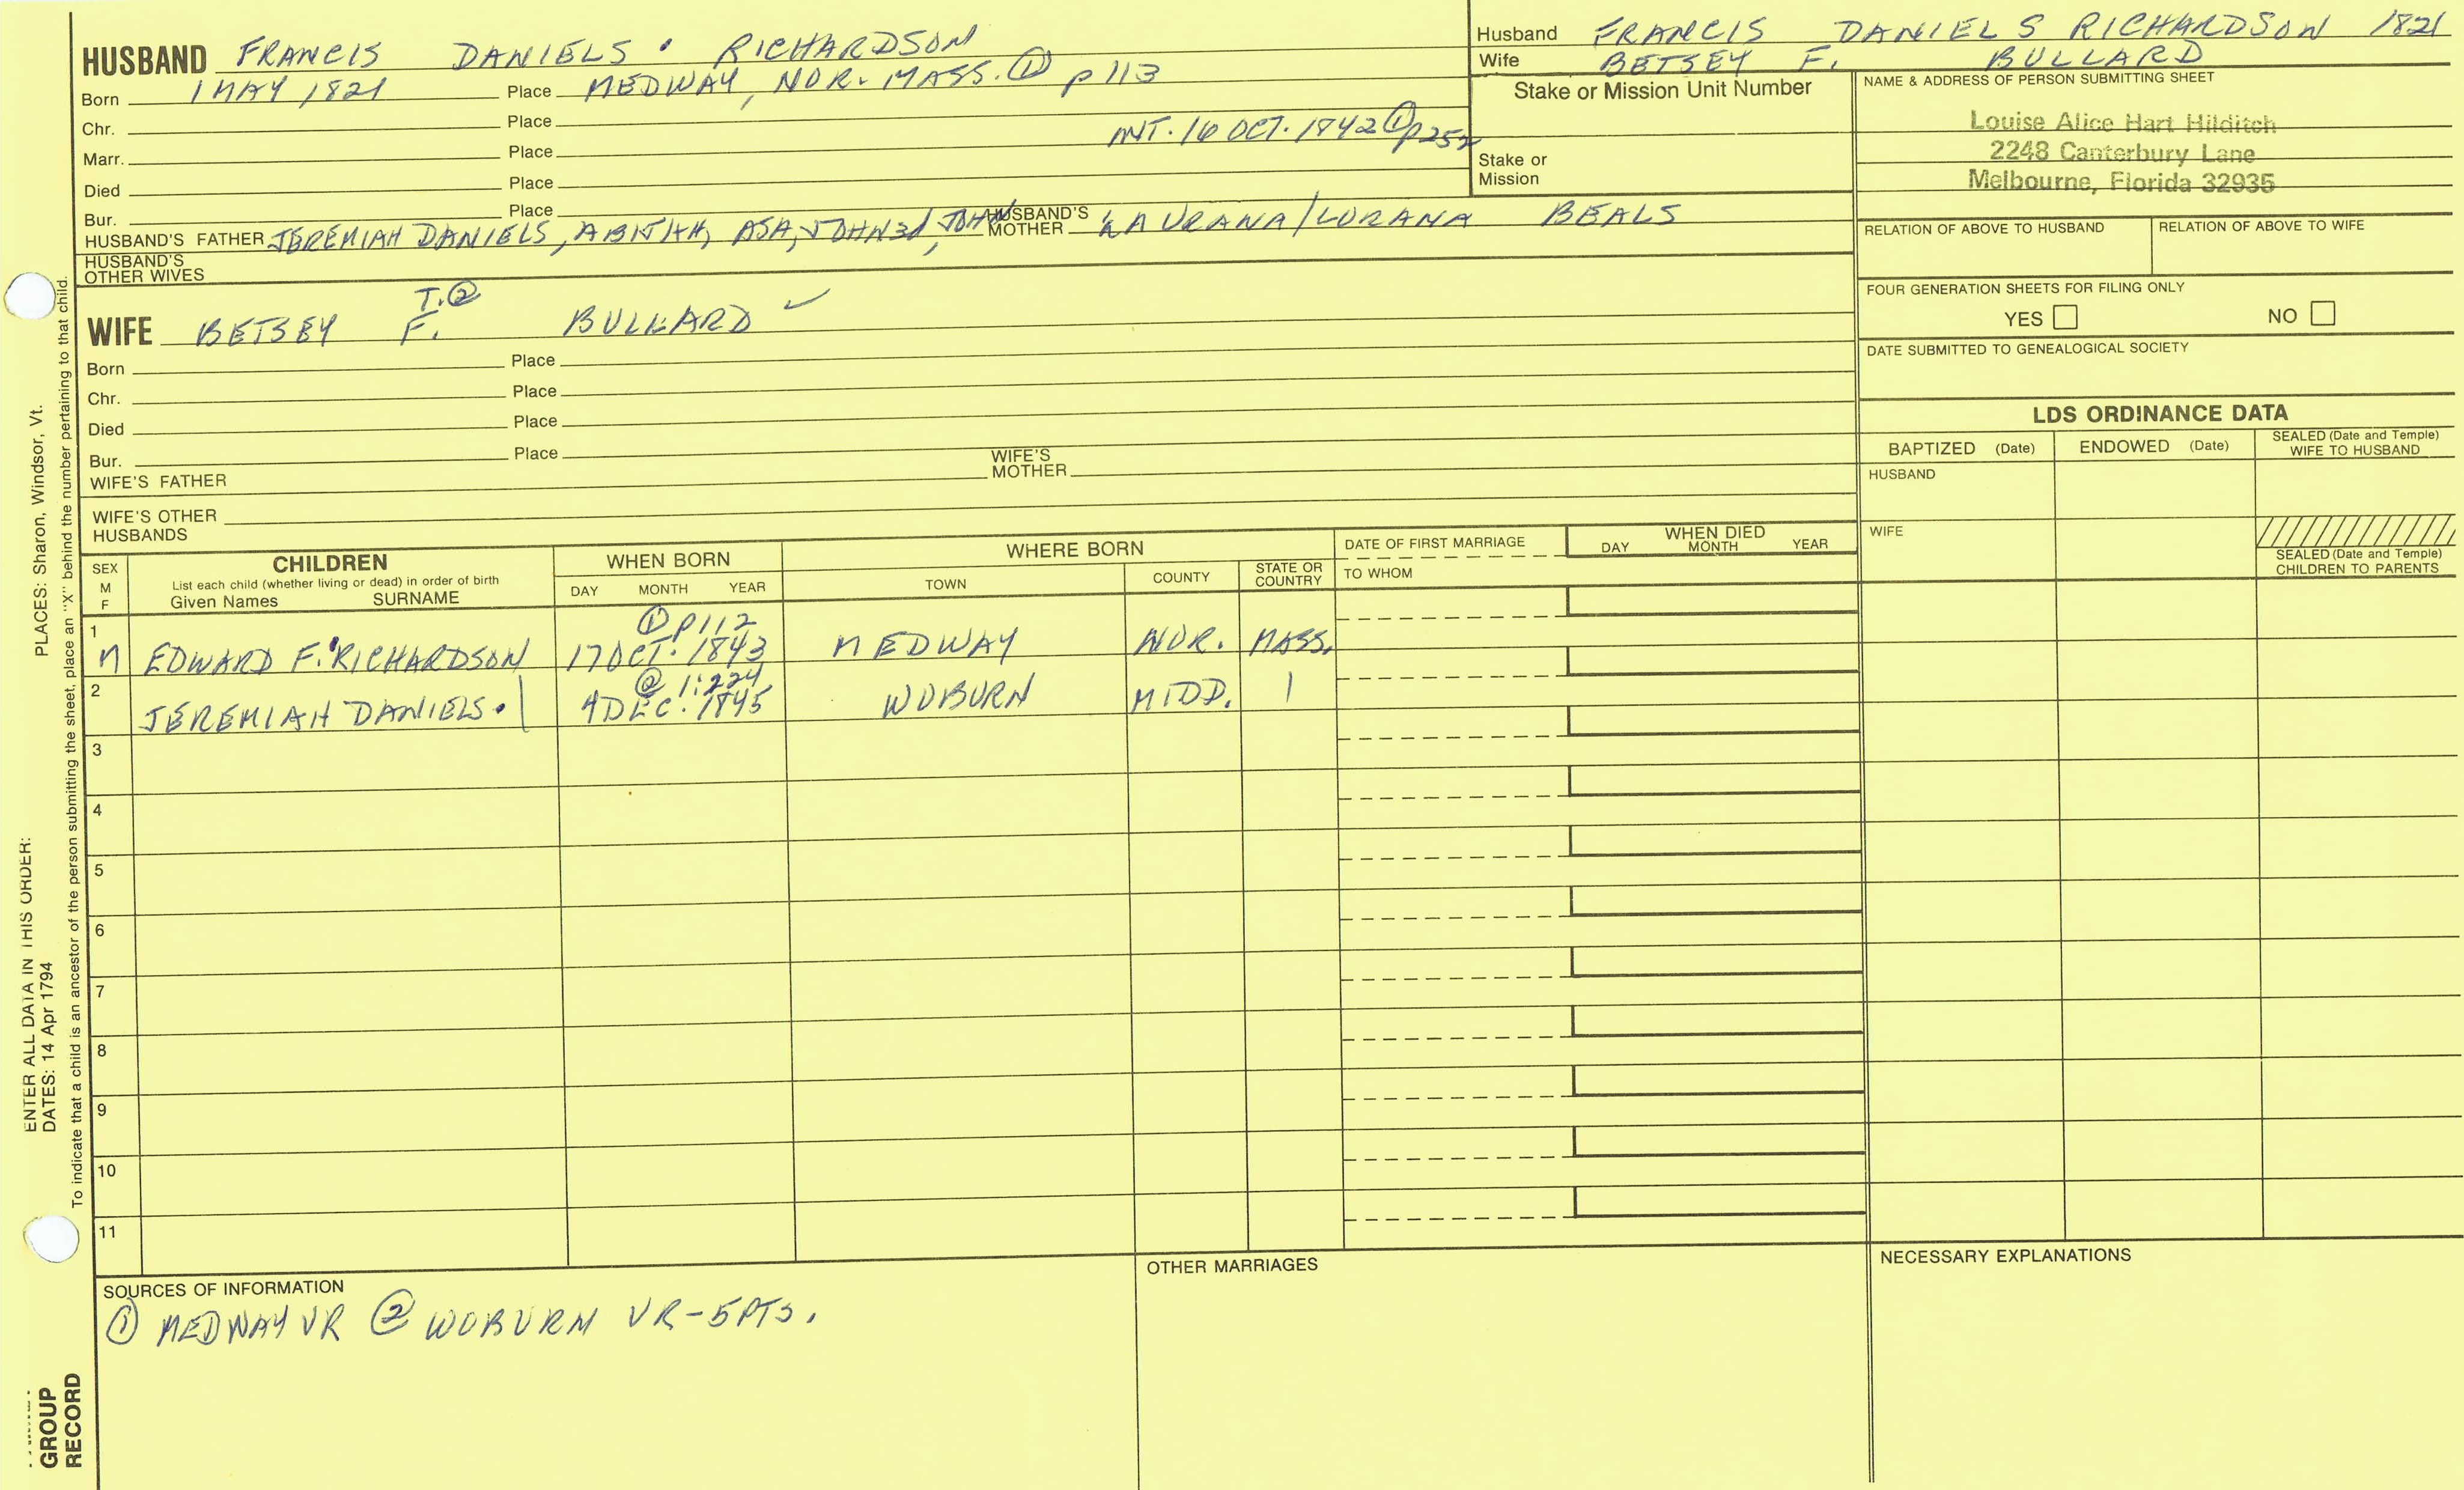 HUSBAND FRANCIS DANIELS • RICHARDSON
Born 1 MAY 1821 Place MEDWAY, NOR. MASS. ① p 113
Chr. Place
Marr. Place INT. 16 OCT. 1842 ① p252
Died Place
Bur. Place
HUSBAND'S FATHER JEREMIAH DANIELS, ABIJAH, ASA, JOHN 3d, JOHN HUSBAND'S MOTHER LAURANA/LURANA BEALS
HUSBAND'S OTHER WIVES
T. ②
WIFE BETSEY F. BULLARD ✓
Born Place
Chr. Place
Died Place
Bur. Place
WIFE'S FATHER WIFE'S MOTHER
WIFE'S OTHER HUSBANDS
Husband FRANCIS DANIELS RICHARDSON 1821
Wife BETSEY F. BULLARD
Stake or Mission Unit Number
Stake or Mission
NAME & ADDRESS OF PERSON SUBMITTING SHEET
Louise Alice Hart Hilditch
2248 Canterbury Lane
Melbourne, Florida 32935
RELATION OF ABOVE TO HUSBAND RELATION OF ABOVE TO WIFE
FOUR GENERATION SHEETS FOR FILING ONLY
YES NO
DATE SUBMITTED TO GENEALOGICAL SOCIETY
LDS ORDINANCE DATA
BAPTIZED (Date) ENDOWED (Date) SEALED (Date and Temple) WIFE TO HUSBAND
HUSBAND
WIFE
SEALED (Date and Temple) CHILDREN TO PARENTS
SEX M F
CHILDREN
List each child (whether living or dead) in order of birth
Given Names SURNAME
WHEN BORN
DAY MONTH YEAR
WHERE BORN
TOWN COUNTY STATE OR COUNTRY
DATE OF FIRST MARRIAGE
TO WHOM
WHEN DIED
DAY MONTH YEAR
① p112
1 M EDWARD F. RICHARDSON 17 OCT. 1843 MEDWAY NOR. MASS.
② 1:224
2 JEREMIAH DANIELS. | 4 DEC. 1845 WOBURN MIDD. |
3
4
5
6
7
8
9
10
11
SOURCES OF INFORMATION
① MEDWAY VR ② WOBURN VR-5PTS.
OTHER MARRIAGES
NECESSARY EXPLANATIONS
ENTER ALL DATA IN THIS ORDER:
DATES: 14 Apr 1794 PLACES: Sharon, Windsor, Vt.
To indicate that a child is an ancestor of the person submitting the sheet, place an "X" behind the number pertaining to that child.
GROUP
RECORD